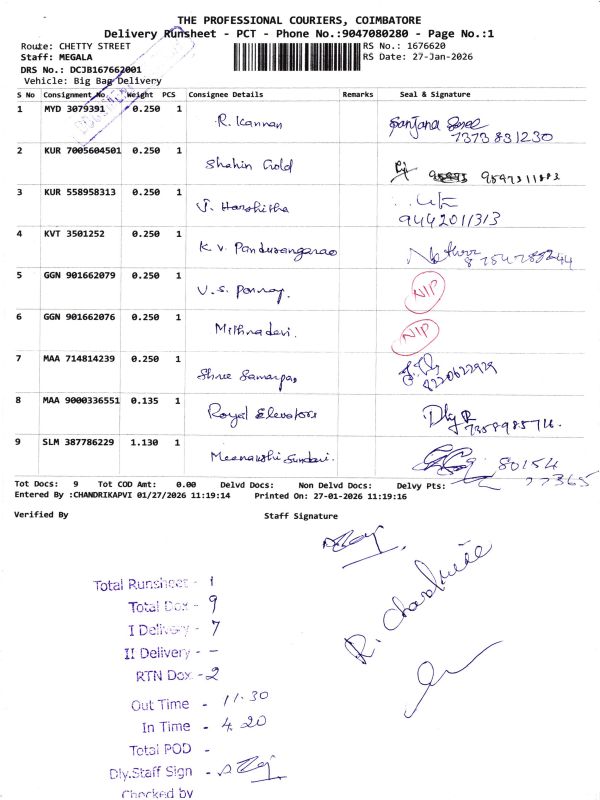 THE PROFESSIONAL COURIERS, COIMBATORE
Delivery Runsheet - PCT - Phone No.:9047080280 - Page No.:1
Route: CHETTY STREET
RS No.: 1676620
Staff: MEGALA
RS Date: 27-Jan-2026
DRS No.: DCJB167662001
Vehicle: Big Bag Delivery
S No Consignment No Weight PCS Consignee Details Remarks Seal & Signature
1 MYD 3079391 0.250 1 R. Kannan Sanjana
7373831230
2 KUR 7005604501 0.250 1 Shahin Gold
3 KUR 558958313 0.250 1 J. Harshitha
9442011313
4 KVT 3501252 0.250 1 K. V. Pandurangarao
5 GGN 901662079 0.250 1 V. S. NIP
6 GGN 901662076 0.250 1 Mithradevi. NIP
7 MAA 714814239 0.250 1 Shree
8220622929
8 MAA 9000336551 0.135 1 Royal Elevators
9 SLM 387786229 1.130 1 80154
77365
Tot Docs: 9 Tot COD Amt: 0.00 Delvd Docs: Non Delvd Docs: Delvy Pts:
Entered By :CHANDRIKAPVI 01/27/2026 11:19:14 Printed On: 27-01-2026 11:19:16
Verified By Staff Signature
R.
Total Runsheet - 1
Total Dox - 9
I Delivery - 7
II Delivery - -
RTN Dox - 2
Out Time - 11.30
In Time - 4.20
Total POD -
Dly.Staff Sign -
Checked by